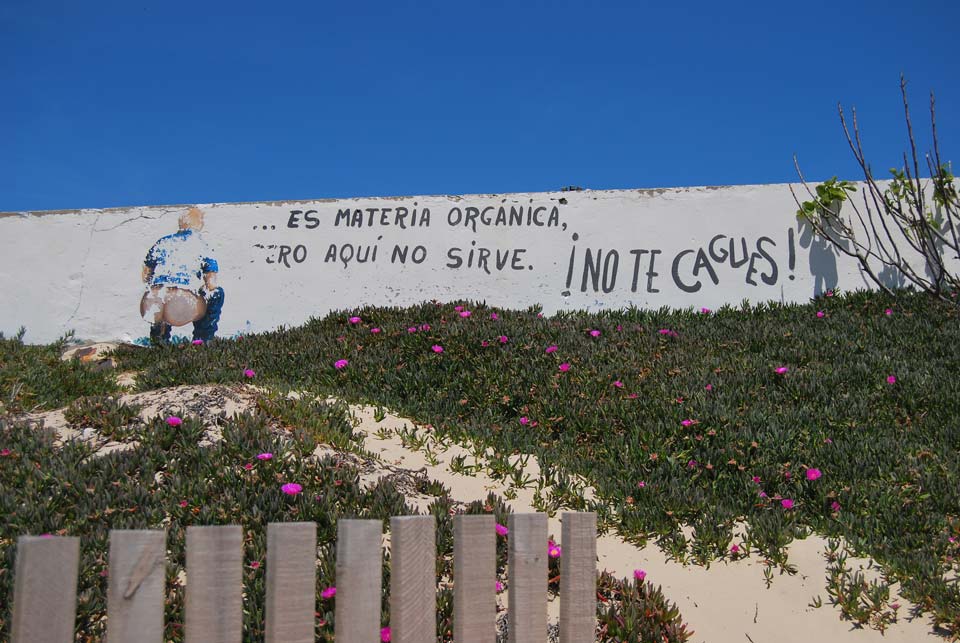 ... ES MATERIA ORGÁNICA,
ERO AQUÍ NO SIRVE. ¡NO TE CAGUES!